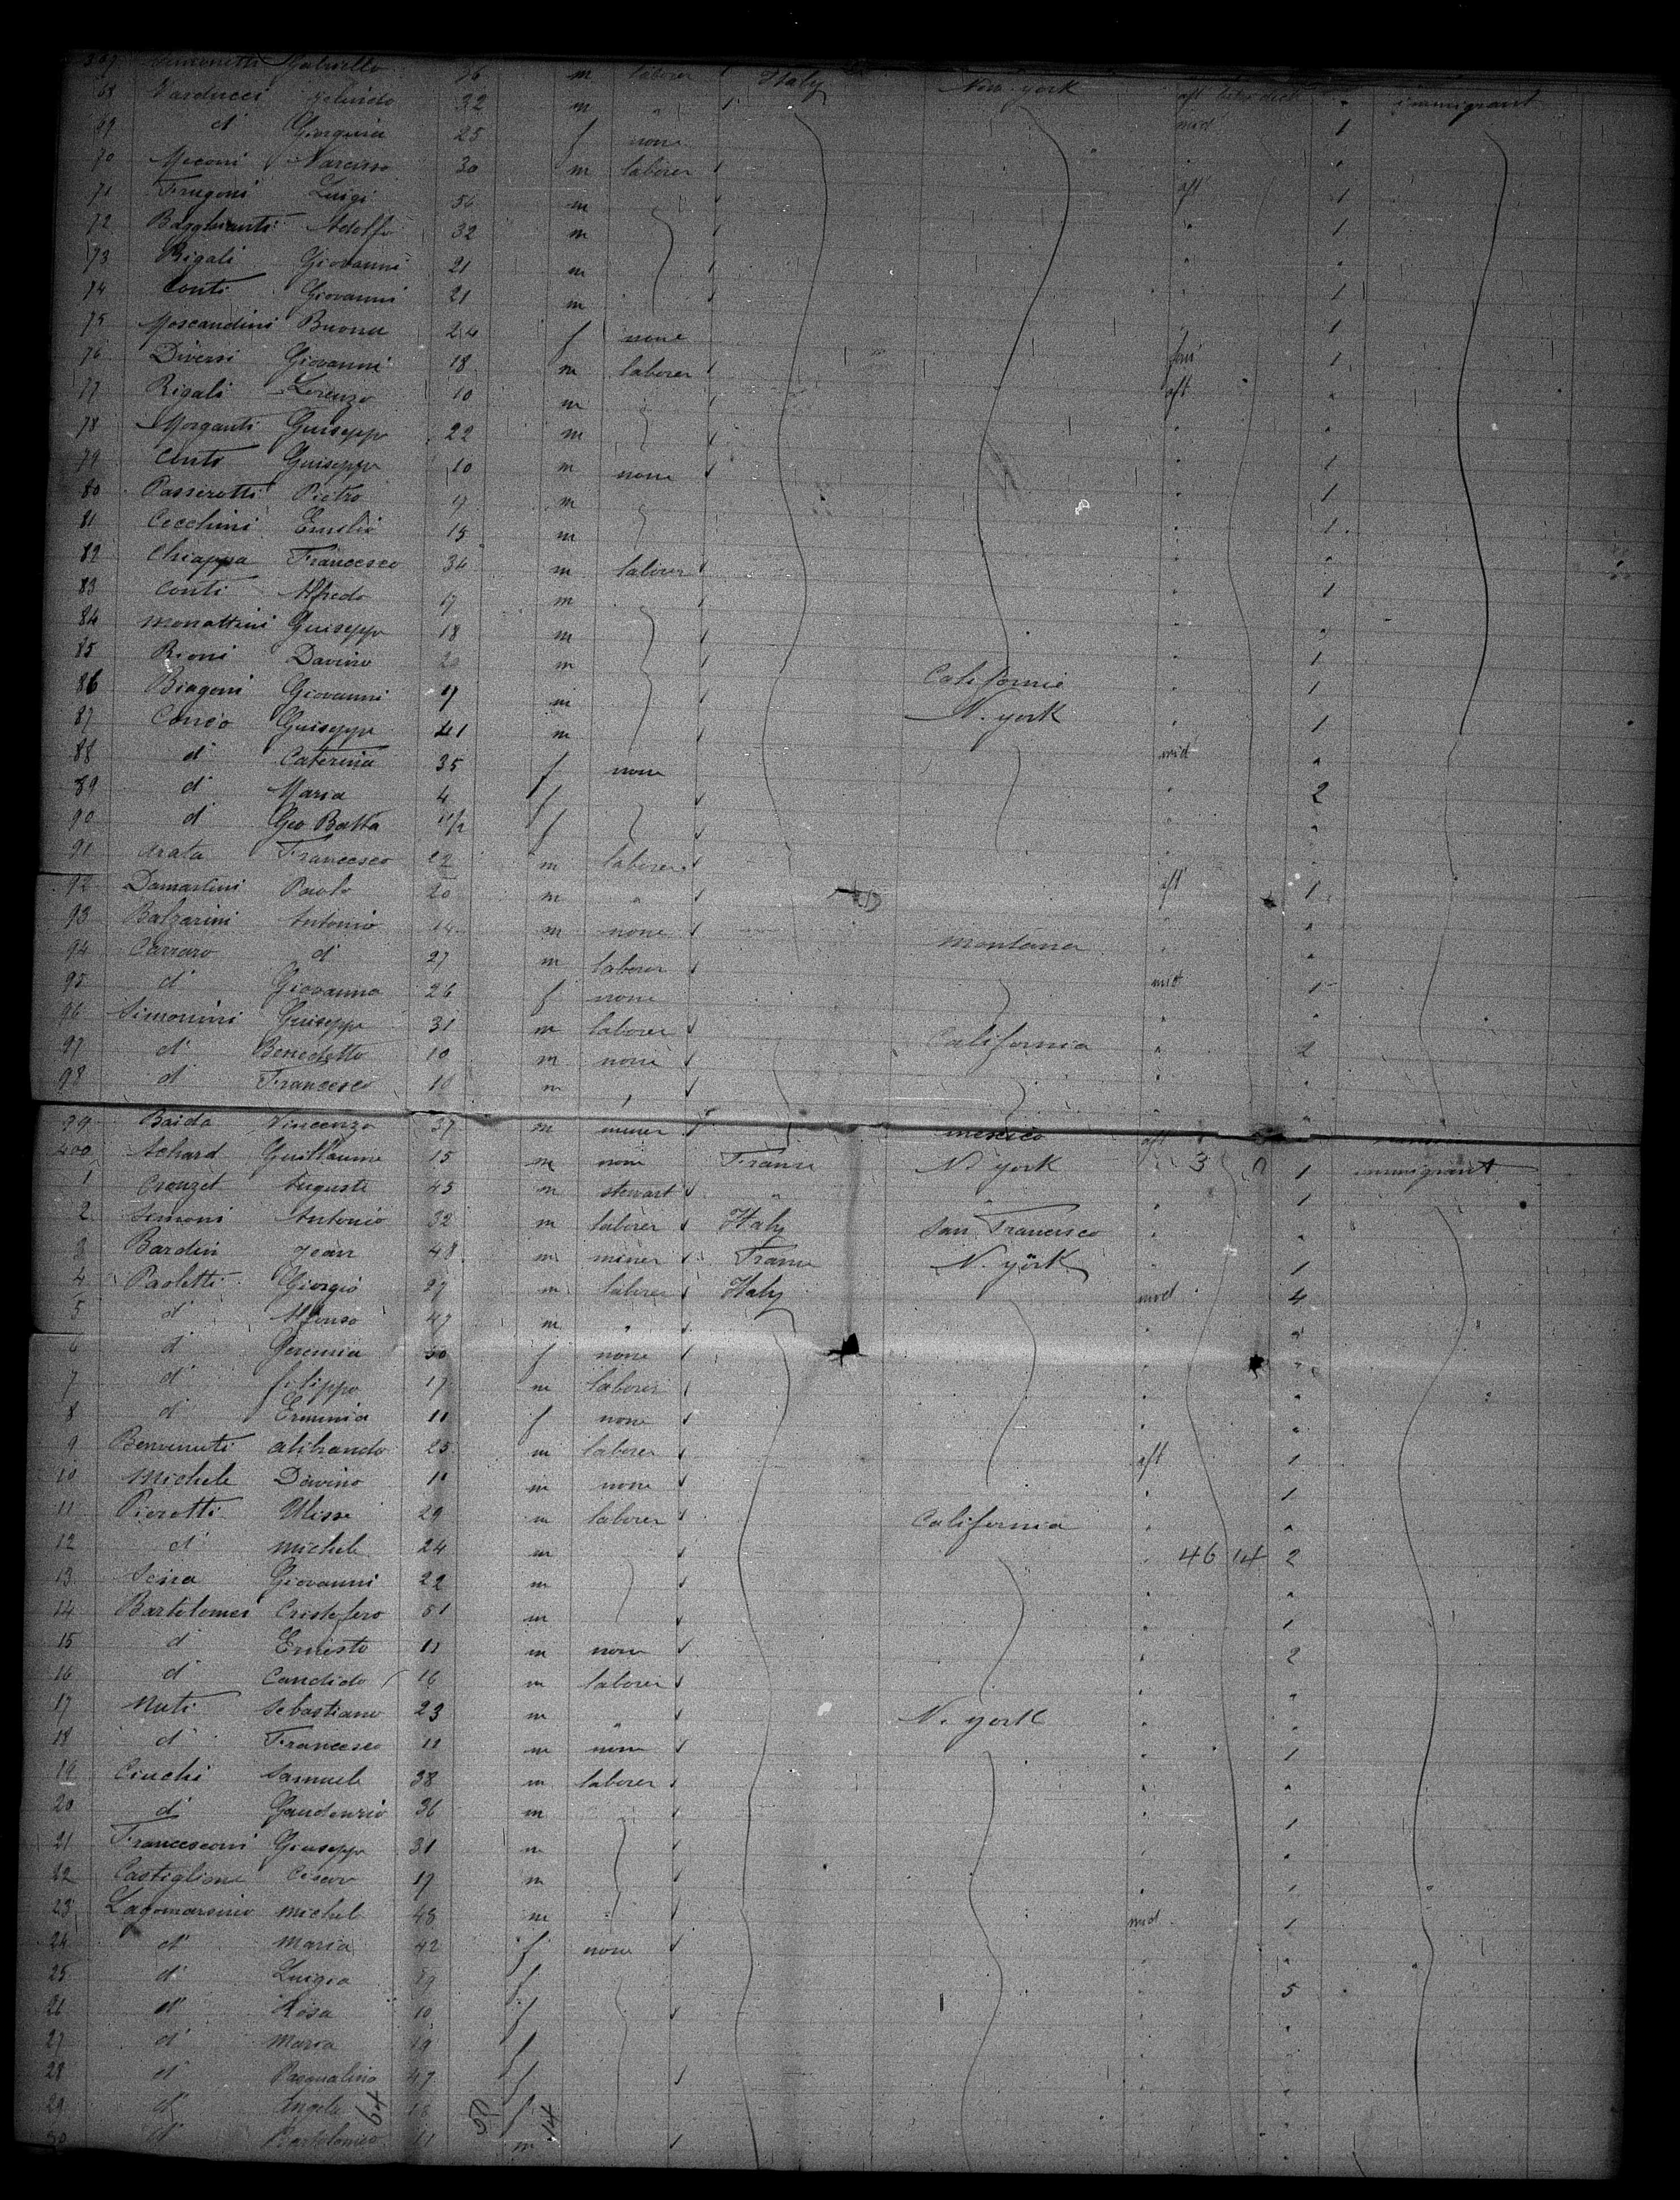 367 Simonetti Gabriello 36 m laborer Italy New-york aft betw deck " immigrant
68 Varducci 32 m " mid 1
69 d' Giorguia 25 f none "
70 Meconi Narcisso 30 m laborer aft 1
71 Frugoni Luigi 56 m " 1
72 Adolfo 32 m " "
73 Rigali Giovanni 21 m " 1
74 Conti Giovanni 21 m " 1
75 Moscandini Buona 24 f none
76 Diversi Giovanni 18 m laborer 1
77 Rigali Lorenzo 10 m aft "
78 Morganti Guiseppe 22 m " "
79 Conti Guiseppe 10 m none " 1
80 Passerotti Pietro 17 m " 1
81 Cecchini Emilio 15 m " 1
82 Chiappa Francesco 34 m laborer " "
83 Conti Alfredo 17 m " 1
84 Guiseppe 18 m " "
85 Rioni Davino 20 m " 1
86 Biagoni Giovanni 17 m Californie " 1
87 Guiseppe 41 m N. york " 1
88 d' Caterina 35 f none mid "
89 d' Maria 4 f " 2
90 d' Geo Batta f " "
91 Arata Francesco 22 m laborer
92 Damartini Paolo 20 m " aft 1
93 Balzarini Antonio 14 m none " "
94 Carraro d' 27 m laborer montana " "
95 d' Giovanna 26 f none mid 1
96 Simonini Guiseppe 31 m laborer " "
97 d' Benedetto 10 m none California " 2
98 d' Francesco 10 m " " "
99 Baida Vincenzo 37 m miner mexico aft "
400 Achard Guillaume 15 m none France N. york " 3 1 immigrant
1 Crouzet Auguste 45 m stewart " " 1
2 Simoni Antonio 32 m laborer Italy San Francisco " "
3 Bardin Jean 48 m miner France N. york " 1
4 Paoletti Giorgio 27 m laborer Italy mid 4
5 d' Alfonso 47 m " " "
6 d' Geremia 50 f none " "
7 d' filippo 17 m laborer " "
8 d' Erminia 11 f none " "
9 Benvenuti 25 m laborer aft 1
10 Michele Davino 11 m none " 1
11 Pierotti Ulisse 29 m laborer California " "
12 d' michele 24 m " 46 14 2
13 Giovanni 22 m " "
14 Bartolomei Cristofero 51 m " 1
15 d' Ernesto 11 m none " 2
16 d' Candido 16 m laborer " "
17 Nuti Sebastiano 23 m " N. york " "
18 d' Francesco 11 m none " 1
19 Ciuchi Samuele 38 m laborer " "
20 d' Gaudenzio 36 m " 1
21 Francesconi Giuseppe 31 m " "
22 Castiglione 17 m " 1
23 Lagomarsino michele 48 m mid 1
24 d' Maria 42 f none "
25 d' Luigia f " 5
26 d' Rosa 10 f " "
27 d' Maria 19 f "
28 d' Pasqualino 47 f "
29 d' Angela f "
30 d' Bartolomeo 11 m "
64 50 14